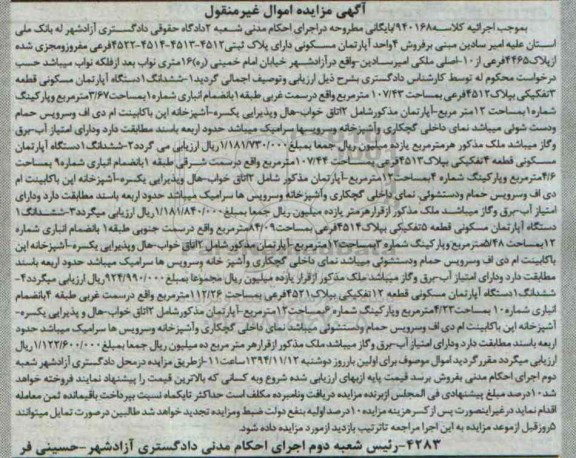 آگهی مزایده اموال غیرمنقول
بموجب اجرائیه کلاسه ۹۴۰۱۶۸/بایگانی مطروحه دراجرای احکام مدنی شعبه ۲دادگاه حقوقی دادگستری آزادشهر له بانک ملی
استان علیه امیر سادین مبنی برفروش ۴واحد آپارتمان مسکونی دارای پلاک ثبتی۴۵۱۲-۴۵۱۳-۴۵۱۴-۴۵۲۲فرعی مفروزومجزی شده
ازپلاک۴۴۶۵فرعی از۱۰-اصلی ملکی امیرسادین-واقع درآزادشهر خیابان امام خمینی (ره)۱۶متری نواب بعد ازفلکه نواب میباشد حسب
درخواست محکوم له توسط کارشناس دادگستری بشرح ذیل ارزیابی وتوصیف اجمالی گردید۱-ششدانگ۱دستگاه آپارتمان مسکونی قطعه
۳تفکیکی بپلاک۴۵۱۲فرعی بمساحت ۱۰۷/۴۳ مترمربع واقع درسمت غربی طبقه۱بانضمام انباری شماره۱بمساحت۳/۶۷مترمربع وپارکینگ
شماره۱بمساحت ۱۲متر مربع-آپارتمان مذکورشامل ۲اتاق خواب-هال وپذیرایی یکسره-آشپزخانه اپن باکابینت ام دی اف وسرویس حمام
ودست شوئی میباشد نمای داخلی گچکاری وآشپزخانه وسرویسها سرامیک میباشد حدود اربعه باسند مطابقت دارد ودارای امتیاز آب-برق
وگاز میباشد ملک مذکور هرمترمربع یازده میلیون ریال جمعا بمبلغ۱/۱۸۱/۷۳۰/۰۰۰ریال ارزیابی می گردد۲-ششدانگ۱دستگاه آپارتمان
مسکونی قطعه ۴تفکیکی بپلاک۴۵۱۳فرعی بمساحت ۱۰۷/۴۴مترمربع واقع درسمت شرقی طبقه ۱بانضمام انباری شماره۹ بمساحت
۴/۶مترمربع وپارکینگ شماره ۴بمساحت۱۲مترمربع-آپارتمان مذکور شامل ۲اتاق خواب-هال وپذیرایی یکسره-آشپزخانه اپن باکابینت ام
دی اف وسرویس حمام ودستشوئی نمای داخلی گچکاری وآشپزخانه وسرویس ها سرامیک میباشد حدود اربعه باسند مطابقت دارد ودارای
امتیاز آب-برق وگاز میباشد ملک مذکور ازقرارهرمتر یازده میلیون ریال جمعا بمبلغ۱/۱۸۱/۸۴۰/۰۰۰ریال ارزیابی میگردد۳-ششدانگ۱
دستگاه آپارتمان مسکونی قطعه ۵تفکیکی بپلاک۴۵۱۴فرعی بمساحت۸۴/۰۹مترمربع واقع درسمت جنوبی طبقه۱ بانضمام انباری شماره
۱۲بمساحت۵/۴۸مترمربع وپارکینگ شماره ۳بمساحت۱۲مترمربع-آپارتمان مذکور شامل ۲اتاق خواب-هال وپذیرایی یکسره-آشپزخانه اپن
باکابینت ام دی اف وسرویس حمام ودستشوئی میباشد نمای داخلی گچکاری وآشپز خانه وسرویس ها سرامیک میباشد حدود اربعه باسند
مطابقت دارد ودارای امتیاز آب-برق وگاز میباشد ملک مذکور ازقرار یازده میلیون ریال مجموعا بمبلغ ۹۲۴/۹۹۰/۰۰۰ریال ارزیابی میگردد۴-
ششدانگ۱دستگاه آپارتمان مسکونی قطعه ۱۲تفکیکی بپلاک۴۵۲۱فرعی بمساحت ۱۱۲/۲۶مترمربع واقع درسمت غربی طبقه ۴بانضمام
انباری شماره ۱۰بمساحت۴/۲۳مترمربع وپارکینگ شماره ۶بمساحت۱۲مترمربع-آپارتمان مذکورشامل ۲اتاق خواب-هال و پذیرایی یکسره-
آشپزخانه اپن باکابینت ام دی اف وسرویس حمام ودستشوئی میباشد نمای داخلی گچکاری وآشپزخانه وسرویس ها سرامیک میباشد حدود
اربعه باسند مطابقت دارد ودارای امتیاز آب-برق وگاز میباشد ملک مذکور ازقرارهر متر مربع ده میلیون ریال جمعا بمبلغ ۱/۱۲۲/۶۰۰/۰۰۰ریال
ارزیابی میگردد مقررگردید اموال موصوف برای اولین بارروز دوشنبه ۱۳۹۴/۱۱/۱۲ساعت۱۱-ازطریق مزایده درمحل دادگستری آزادشهر شعبه
دوم اجرای احکام مدنی بفروش برسد قیمت پایه ازبهای ارزیابی شده شروع وبه کسانی که بالاترین قیمت را پیشنهاد نمایند فروخته خواهد
شد۱۰درصد مبلغ پیشنهادی فی المجلس ازبرنده مزایده دریافت ونامبرده مکلف است حداکثر تایکماه نسبت بپرداخت باقیمانده ثمن معامله
اقدام نماید درغیراینصورت پس از کسرهزینه مزایده ۱۰درصد اولیه بنفع دولت ضبط ومزایده تجدید خواهد شد طالبین درصورت تمایل میتوانند
۵روزقبل ازموعد مزایده به این اجرا مراجعه تاترتیب بازدید ازمورد مزایده داده شود.
۴۲۸۳-رئیس شعبه دوم اجرای احکام مدنی دادگستری آزادشهر-حسینی فر